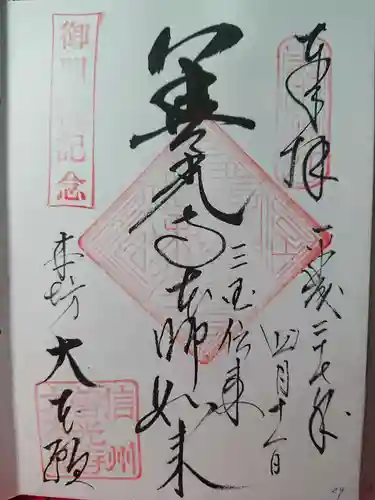 奉拝
平成二十七年
四月十一日
三国伝来
善光寺本師如来
御開帳記念
本坊
大本願
信州
善光寺
29